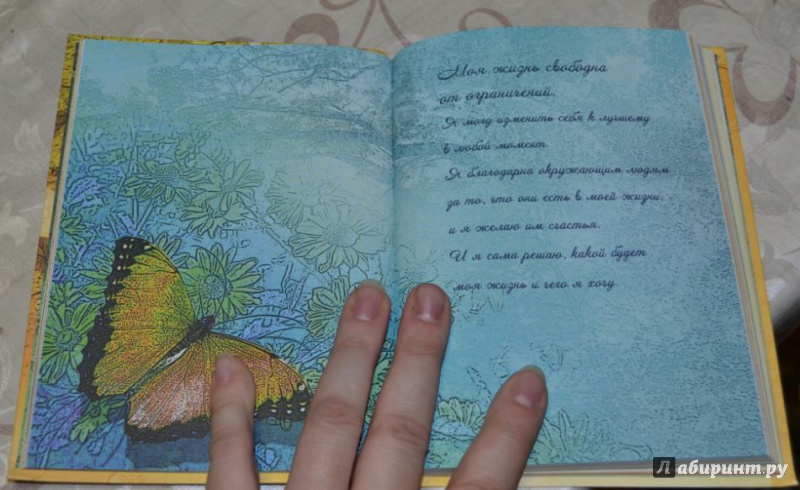 Моя жизнь свободна
от ограничений.
Я могу изменить себя к лучшему
в любой момент.
Я благодарна окружающим людям
за то, что они есть в моей жизни,
и я желаю им счастья.
И я сама решаю, какой будет
моя жизнь и чего я хочу.
Лабиринт.ру